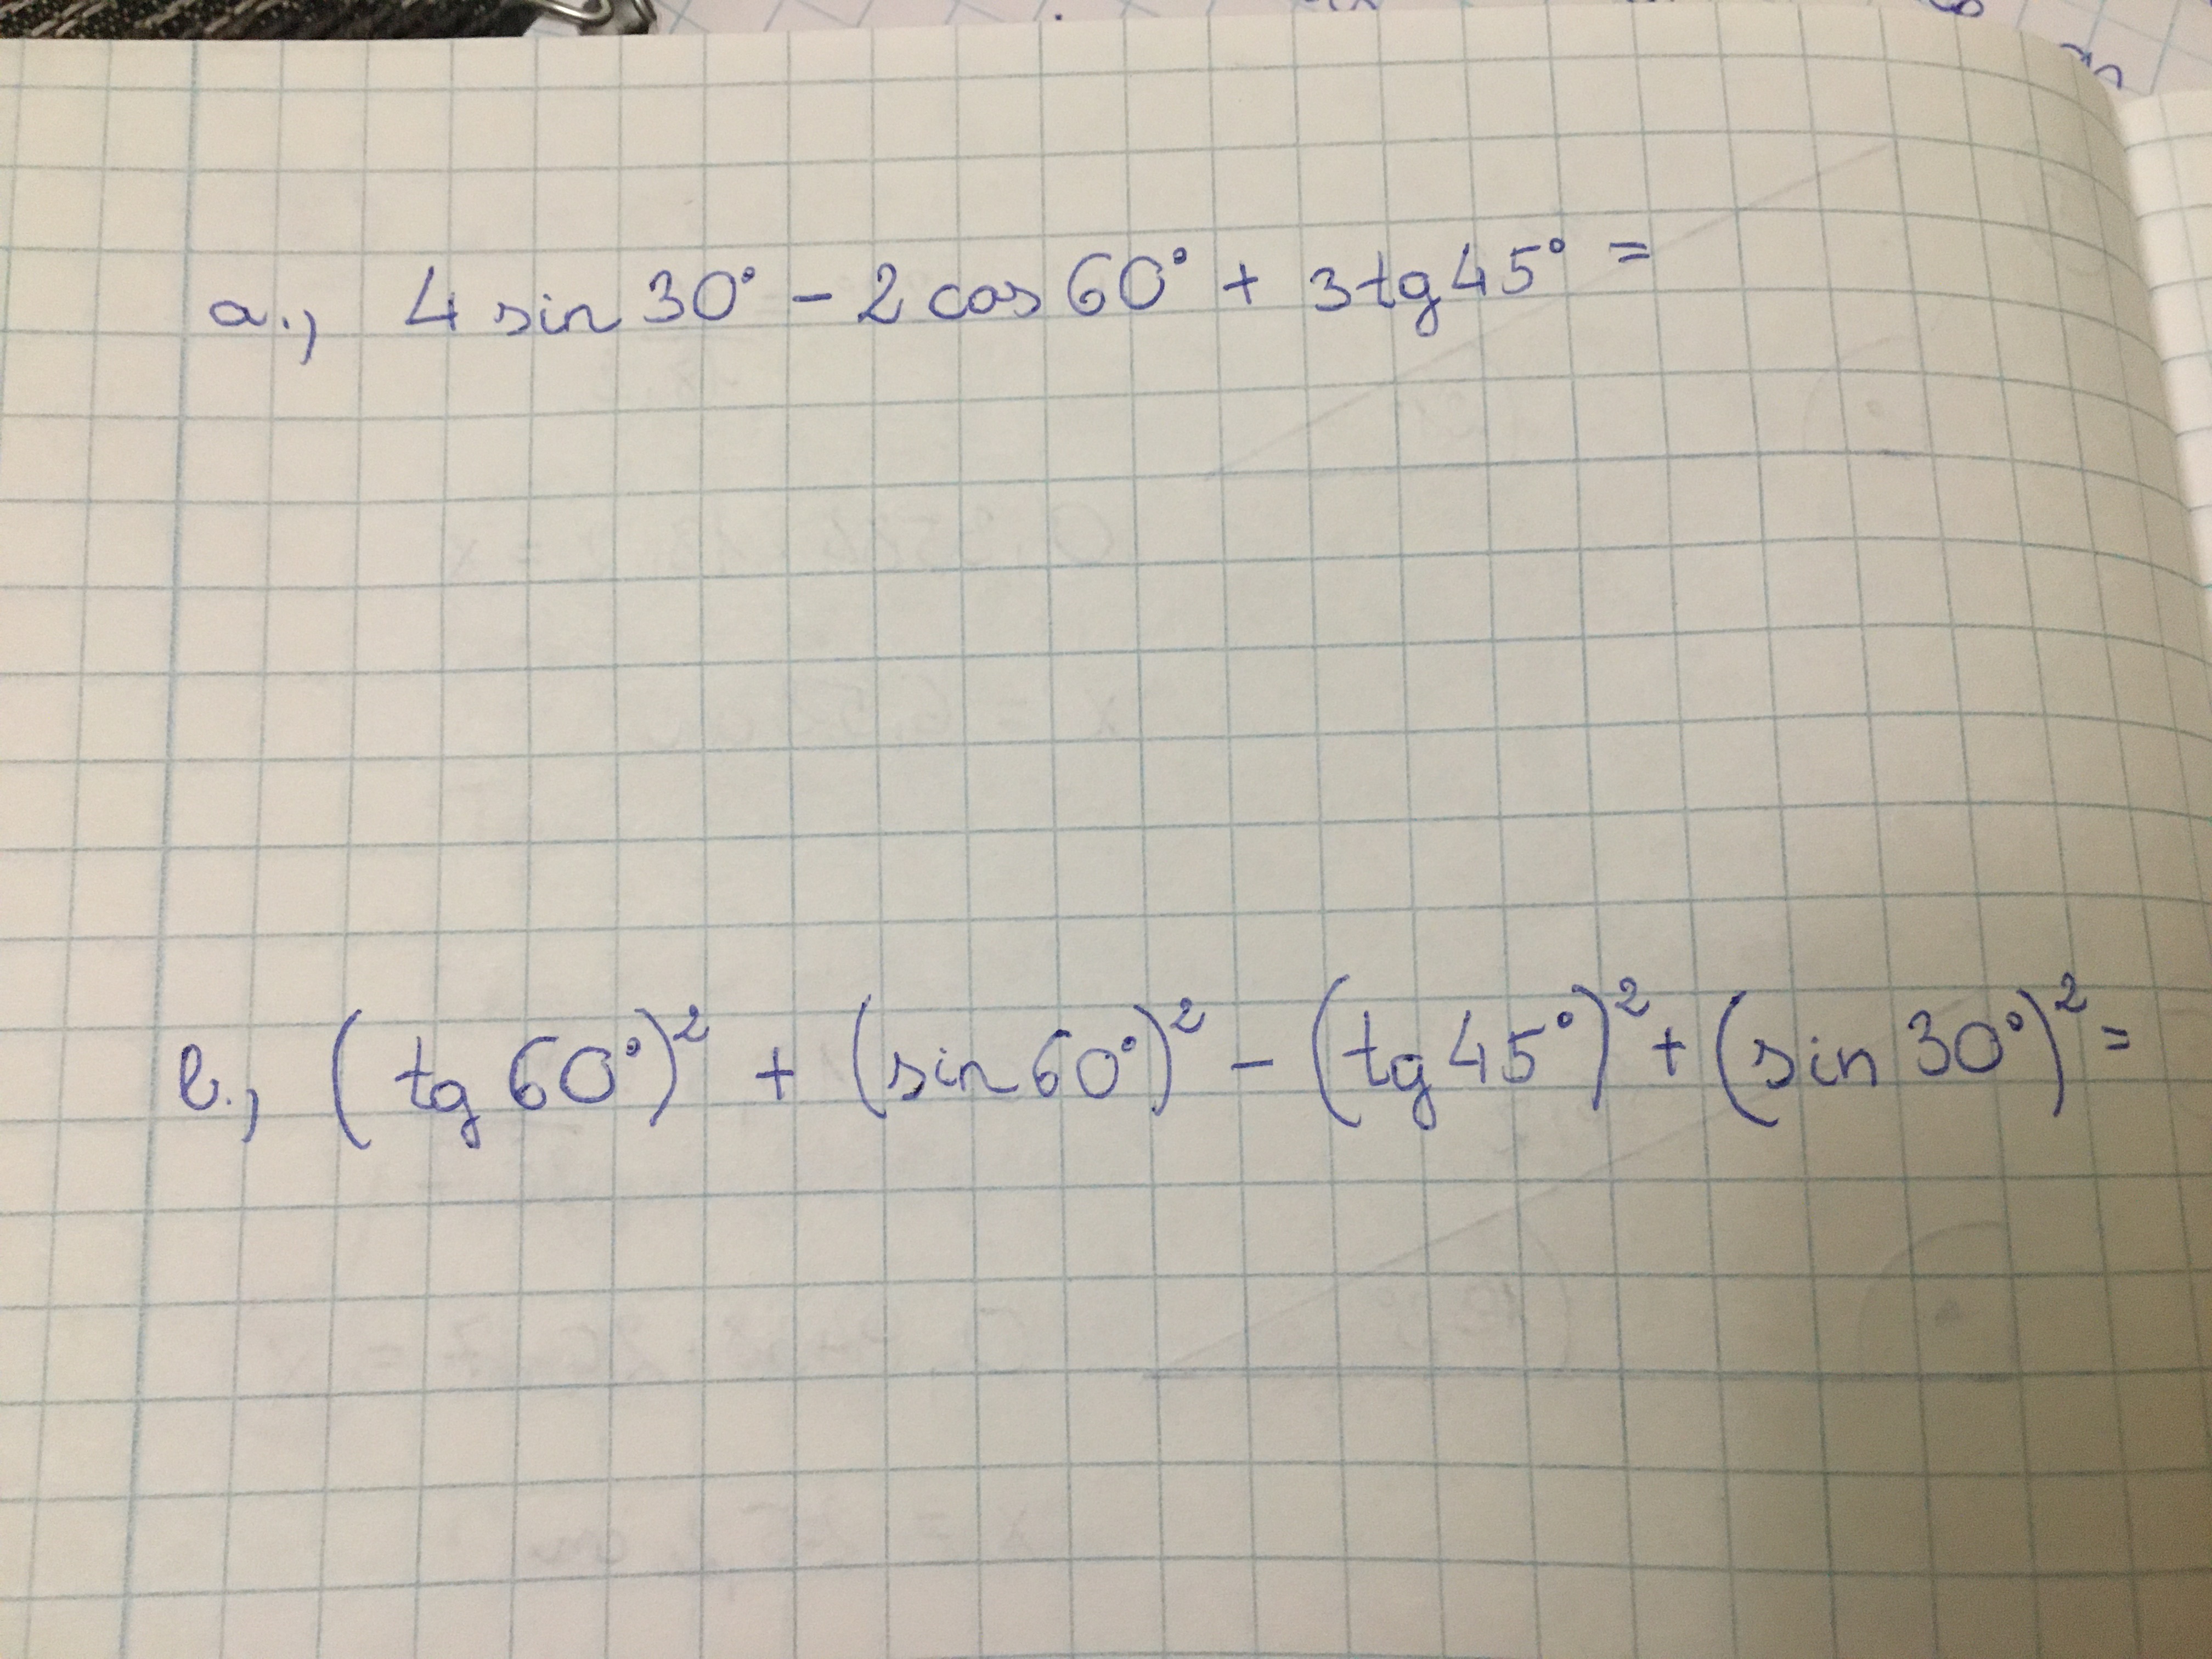 a., 4 sin 30° - 2 cos 60° + 3 tg 45° =
b., (tg 60°)² + (sin 60°)² - (tg 45°)² + (sin 30°)² =